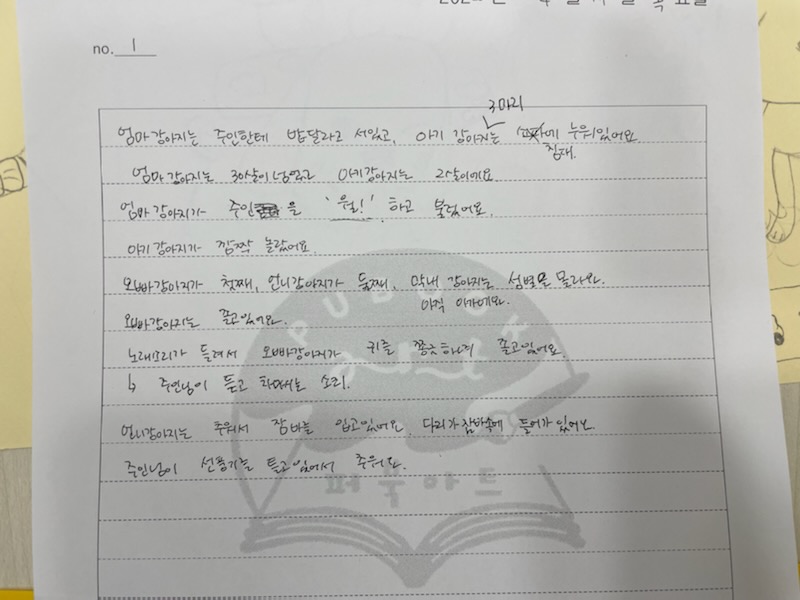 no. 1
3마리
엄마강아지는 주인한테 밥달라고 서있고, 아기 강아지는 에 누워있어요
침대.
엄마강아지는 30살이 넘었고 아기강아지는 2살이에요
엄마강아지가 주인을 '월!' 하고 불렀어요.
아기강아지가 깜짝 놀랐어요.
오빠강아지가 첫째, 언니강아지가 둘째, 막내 강아지는 성별을 몰라요.
아직 아가에요.
오빠강아지는 졸고있어요.
노래소리가 들려서 오빠강아지가 귀를 쫑긋하며 졸고있어요.
↳ 주인님이 듣고 소리.
언니강아지는 추워서 잠바를 입고있어요. 다리가 잠바속에 들어가 있어요.
주인님이 선풍기를 틀고있어서 추워요.
PUBOOK
퍼북아트